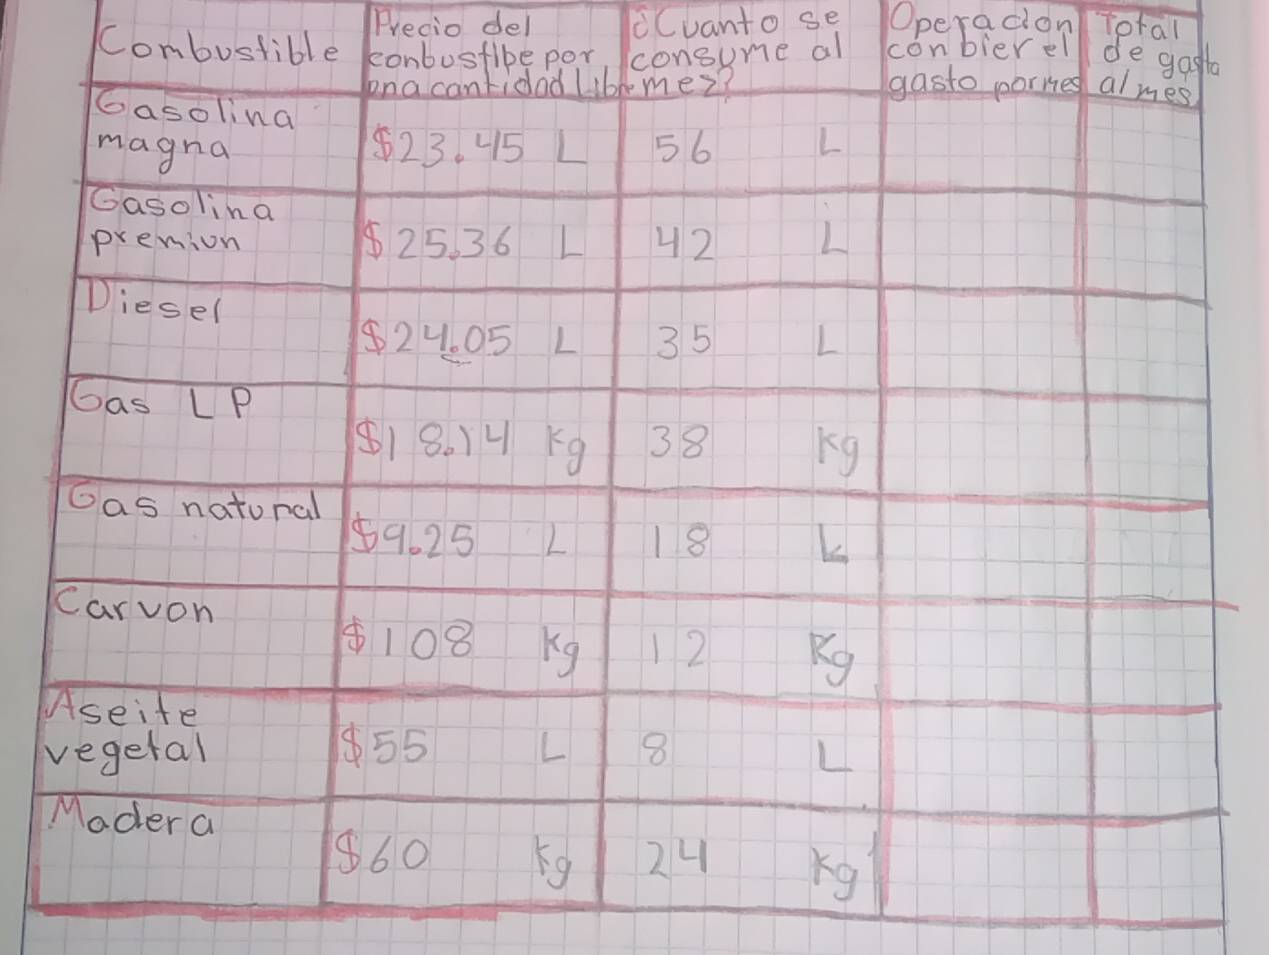 Combustible
Precio del
conbustibe por
una cantidad Libre
¿Cuanto se
consume al
mes?
Operacion
conbier el
gasto por mes
Total
de gasto
al mes
Gasolina
magna
$23.45 L
56 L
Gasolina
premiun
$25.36 L
42 L
Diesel
$24.05 L
35 L
Gas LP
$18.14 Kg
38 Kg
Gas natural
$9.25 L
18 L
Carvon
$108 Kg
12 Kg
Aseite
vegetal
$55 L
8 L
Madera
$60 Kg
24 Kg